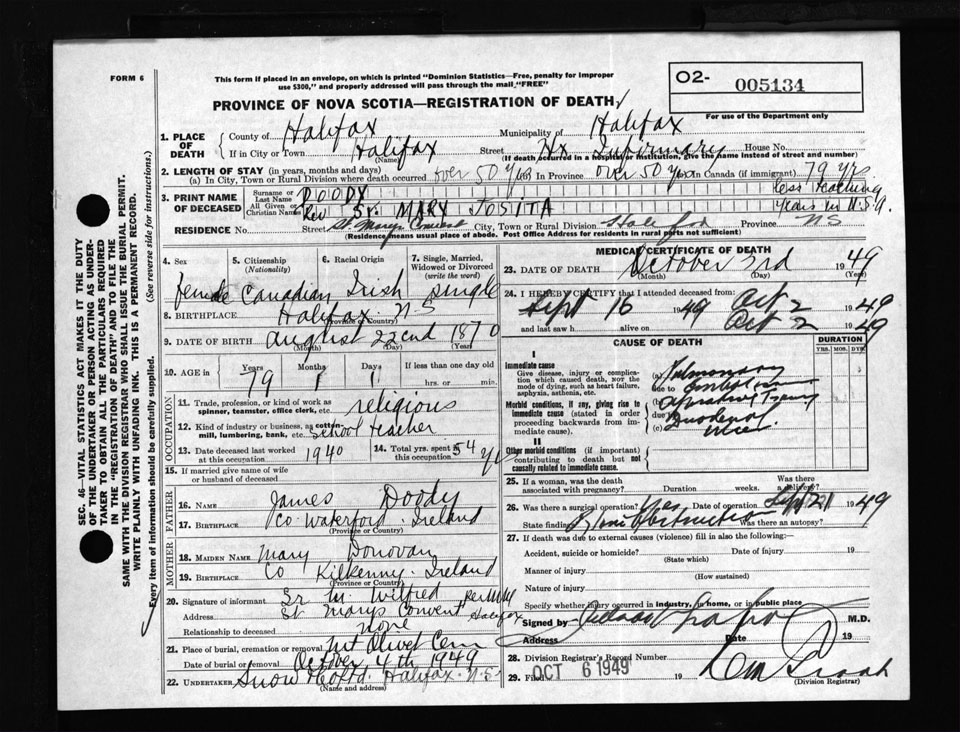 FORM 6
This form if placed in an envelope, on which is printed "Dominion Statistics—Free, penalty for improper
use $300," and properly addressed will pass through the mail "FREE"
O2- 005134
For use of the Department only
PROVINCE OF NOVA SCOTIA—REGISTRATION OF DEATH
1. PLACE OF DEATH
County of Halifax Municipality of Halifax
If in City or Town Halifax (Name) Street Hx Infirmary House No.
(If death occurred in a hospital or institution, give the name instead of street and number)
2. LENGTH OF STAY (in years, months and days)
(a) In City, Town or Rural Division where death occurred over 50 yrs (b) In Province over 50 yrs (c) In Canada (if immigrant) 79 yrs
less teaching
years in U.S.A.
3. PRINT NAME OF DECEASED
Surname or Last Name DOODY
All Given or Christian Names Rev Sr. MARY JOSITA
RESIDENCE No. Street St. Marys Convent City, Town or Rural Division Halifax Province NS
(Residence means usual place of abode. Post Office Address for residents in rural parts not sufficient)
4. Sex female
5. Citizenship (Nationality) Canadian
6. Racial Origin Irish
7. Single, Married, Widowed or Divorced (write the word) single
8. BIRTHPLACE Halifax N.S
(Province or Country)
9. DATE OF BIRTH August 22nd 1870
(Month) (Day) (Year)
10. AGE in Years 79 Months 1 Days 11 If less than one day
hrs. or min.
OCCUPATION
11. Trade, profession or kind of work as spinner, teamster, office clerk, etc. religious
12. Kind of industry or business, as cotton-mill, lumbering, bank, etc. School teacher
13. Date deceased last worked at this occupation 1940
14. Total yrs. spent in this occupation 54 yrs
15. If married give name of wife or husband of deceased
FATHER
16. Name James Doody
17. Birthplace Co Waterford. Ireland
(Province or Country)
MOTHER
18. Maiden Name Mary Donovan
19. Birthplace Co Kilkenny. Ireland
(Province or Country)
20. Signature of informant Sr M. Wilfred
Address St Marys Convent Halifax
Relationship to deceased none
21. Place of burial, cremation or removal Mt Olivet Cem
Date of burial or removal October 4th 1949
22. Undertaker Snow & Co Ltd Halifax. N.S.
(Name and address)
MEDICAL CERTIFICATE OF DEATH
23. DATE OF DEATH October 3rd 1949
(Month) (Day) (Year)
24. I HEREBY CERTIFY that I attended deceased from
Sept 16 1949 Oct 2 1949
and last saw h alive on Oct 2 1949
CAUSE OF DEATH
DURATION
YRS. MOS. DYS.
I
Immediate cause
Give disease, injury or complication which caused death, NOT the mode of dying, such as heart failure, asphyxia, asthenia, etc.
(a) Pulmonary
due to embolism
Morbid conditions, if any, giving rise to immediate cause (stated in order proceeding backwards from immediate cause).
(b)
due to
(c) Duodenal
Ulcer
II
Other morbid conditions (if important) contributing to death but not causally related to immediate cause.
25. If a woman, was the death associated with pregnancy? Duration weeks. Was there a delivery?
26. Was there a surgical operation? Yes Date of operation Sept 21 1949
State findings Obstruction Was there an autopsy?
27. If death was due to external causes (violence) fill in also the following:—
Accident, suicide or homicide? Date of injury 19
(State which)
Manner of injury
(How sustained)
Nature of injury
Specify whether injury occurred in industry, in home, or in public place
Signed by M.D.
Address Date 19
28. Division Registrar's Record Number
29. Filed OCT 6 1949 19
(Division Registrar)
SEC. 46—VITAL STATISTICS ACT MAKES IT THE DUTY
OF THE UNDERTAKER OR PERSON ACTING AS UNDER-
TAKER TO OBTAIN ALL THE PARTICULARS REQUIRED
IN THE "REGISTRATION OF DEATH" AND TO FILE THE
SAME WITH THE DIVISION REGISTRAR WHO SHALL ISSUE THE BURIAL PERMIT.
WRITE PLAINLY WITH UNFADING INK. THIS IS A PERMANENT RECORD.
Every item of information should be carefully supplied. (See reverse side for instructions.)